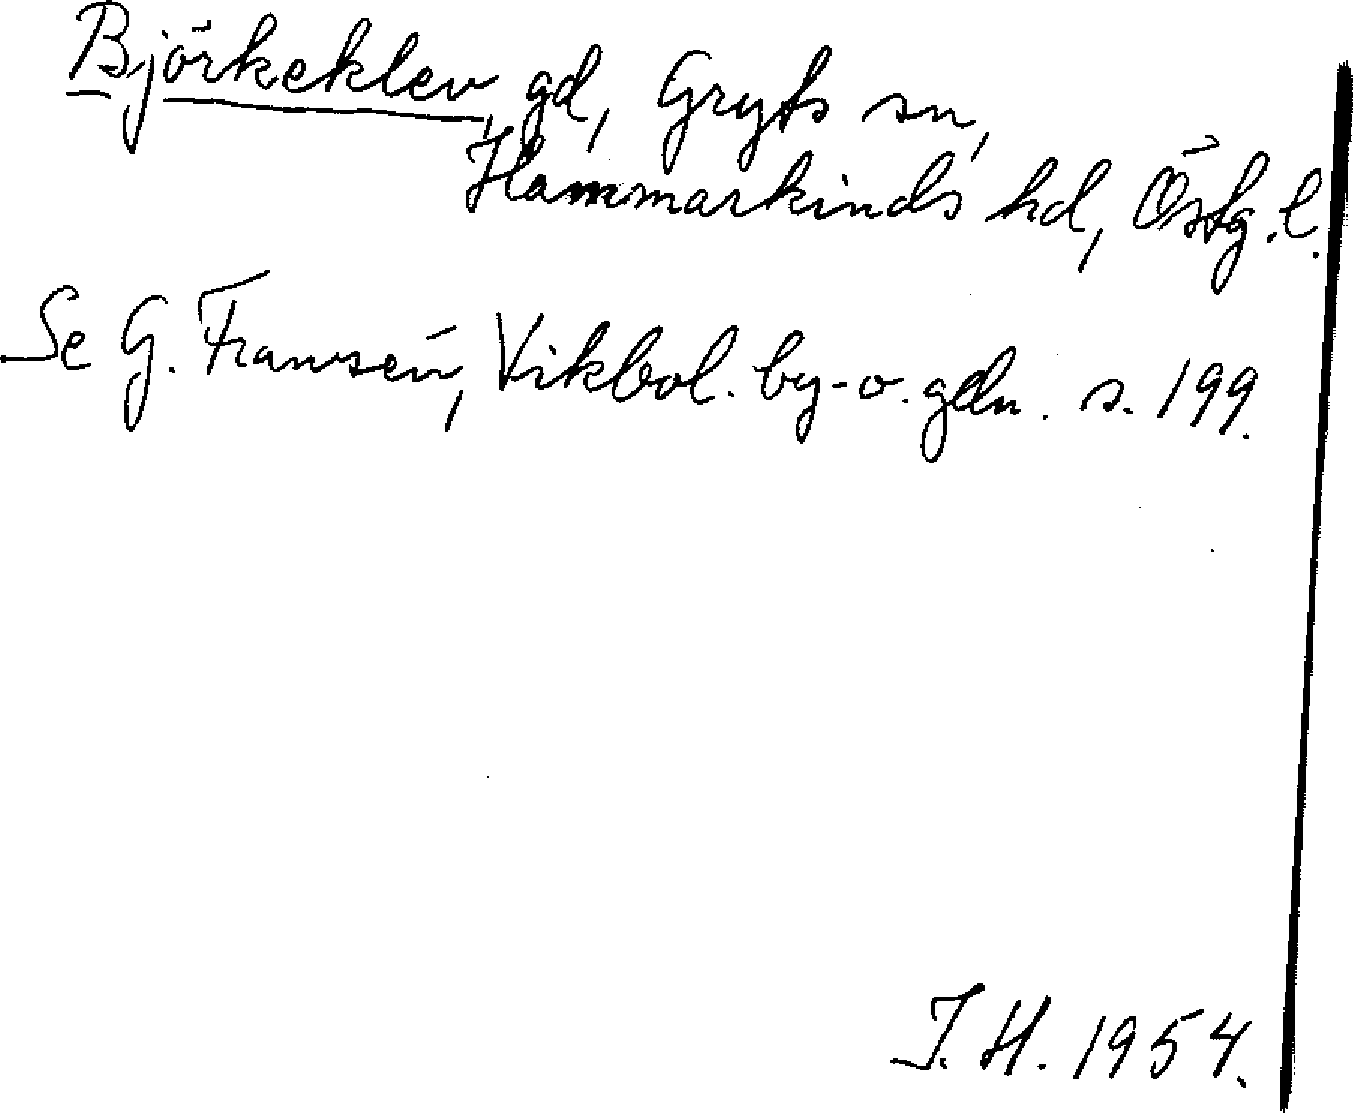 Björkeklev, gd, Gryts sn,
Hammarkinds hd, Östg. l.
Se G. Fransén, Vikbol. by- o. gdn. s. 199.
J. H. 1954.